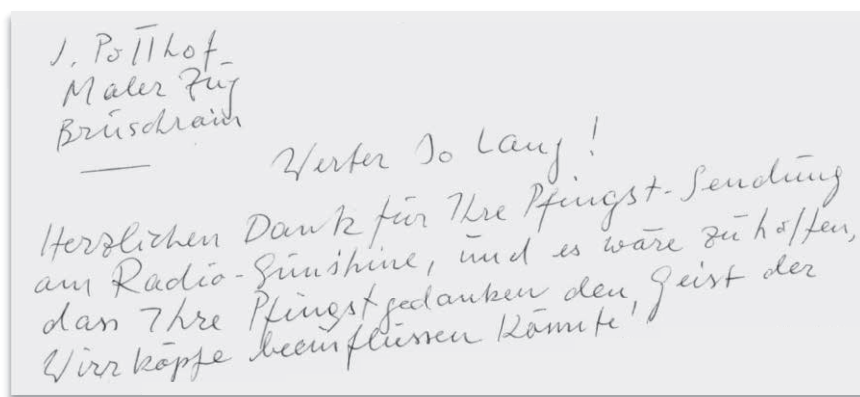 J. Potthof
Maler Zug
Brüschrain
Werter Jo Lang!
Herzlichen Dank für Ihre Pfingst-Sendung
am Radio-Sunshine, und es wäre zu hoffen,
dass Ihre Pfingstgedanken den Geist der
Wirrköpfe beeinflussen könnte!